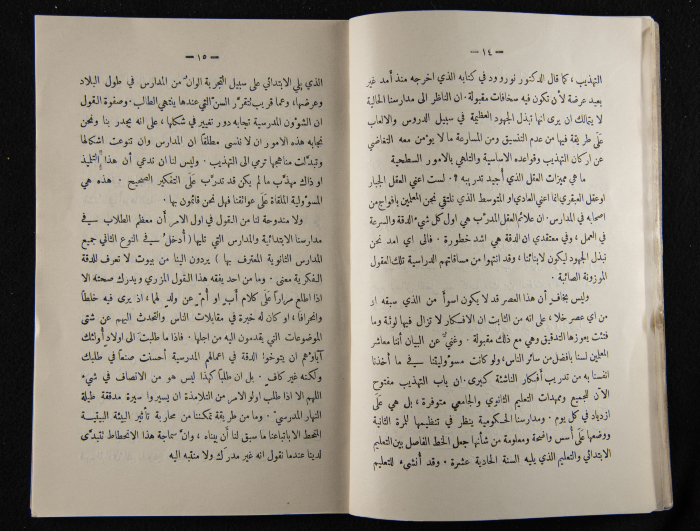 — ١٤ —
التهذيب ، كما قال الدكتور نورود في كتابه الذي اخرجه منذ أمد غير
بعيد عرضة لأن تكون فيه سخافات مقبولة . ان الناظر الى مدارسنا الحالية
لا يتمالك ان يرى انها تبذل الجهود العظيمة في سبيل الدروس والالعاب
على طريقة فيها من عدم التنسيق ومن المسارعة ما لا يؤمن معه التغاضي
عن اركان التهذيب وقواعده الاساسية والتلهي بالامور السطحية
ما هي مميزات العقل الذي أُجيد تدريبه ؟ . لست اعني العقل الجبار
او عقل العبقري انما اعني العادي او المتوسط الذي نلتقي نحن المعلمين بافواج من
اصحابه في المدارس . ان علائم العقل المدرَّب هي اول كل شيء الدقة والسرعة
في العمل ، وفي معتقدي ان الدقة هي اشد خطورة . فالى اي امد نحن
نبذل الجهود ليكون لابنائنا ، وقد انتهوا من مسافاتهم الدراسية تلك العقول
الموزونة الصائبة .
وليس بخافٍ أن هذا العصر قد لا يكون اسوأ من الذي سبقه او
من اي عصر خلا ، على انه من الثابت ان الافكار لا تزال فيها لوثة وما
فتئت يعوزها التدقيق وهي مع ذلك مقبولة . وغنيٌّ عن البيان أننا معاشر
المعلمين لسنا بافضل من سائر الناس ، ولو كانت مسؤوليتنا في ما أخذنا
انفسنا به من تدريب أفكار الناشئة كبرى . ان باب التهذيب مفتوح
لان للجميع وممهدات التعليم الثانوي والجامعي متوفرة ، بل هي على
ازدياد في كل يوم . ومدارسنا الحكومية ينظر في تنظيمها للمرة الثانية
ووضعها على أُسس واضحة ومعلومة من شأنها جعل الخط الفاصل بين التعليم
الابتدائي والتعليم الذي يليه السنة الحادية عشرة . وقد أُنشىء للتعليم
— ١٥ —
الذي يلي الابتدائي على سبيل التجربة الوان من المدارس في طول البلاد
وعرضها ، وعما قريب تتقرَّر السن التي عندها ينتهي الطالب . وصفوة القول
ان الشؤون المدرسية تجابه دور تغيير في شكلها ، على انه يجدر بنا ونحن
نجابه هذه الامور ان لا ننسى مطلقاً ان المدارس وان تنوعت اشكالها
وتبدَّلت مناهجها ترمي الى التهذيب . وليس لنا ان ندعي أن هذا التلميذ
او ذاك مهذَّب ما لم يكن قد تدرَّب على التفكير الصحيح . هذه هي
المسؤولية الملقاة على عواتقنا فهل نحن قائمون بها .
ولا مندوحة لنا من القول في اول الامر أن معظم الطلاب في
مدارسنا الابتدائية والمدارس التي تليها ( أُدخل في النوع الثاني جميع
المدارس الثانوية المعترف بها ) يردون الينا من بيوت لا تعرف للدقة
الفكرية معنى . وما من احد يفقه هذا القول المزري ويدرك صحته الا
اذا اطلع مراراً على كلام أبٍ او أمٍّ عن ولدٍ لهما ، اذ يرى فيه خلطاً
وانحرافاً ، او كان له خبرة في مقابلات الناس والتحدث اليهم عن شتى
الموضوعات التي يقدمون اليه من اجلها . فاذا ما طلبت الى اولاد أولئك
آباؤهم ان يتوخوا الدقة في اعمالهم المدرسية أحسنت صنعاً في طلبك
ولكنه غير كافٍ . بل ان طلباً كهذا ليس هو من الانصاف في شيء
اللهم الا اذا طلب اولو الامر من التلامذة ان يسيروا سيرة مدققة طيلة
النهار المدرسيّ . وما من طريقة تمكننا من محاربة تأثير البيئة البيتية
المنحط الا باتباعنا ما سبق لنا أن بيناه ، وانَّ سماجة هذا الانحطاط تتبدَّى
لدينا عندما نقول انه غير مدرَك ولا منتقبه اليه